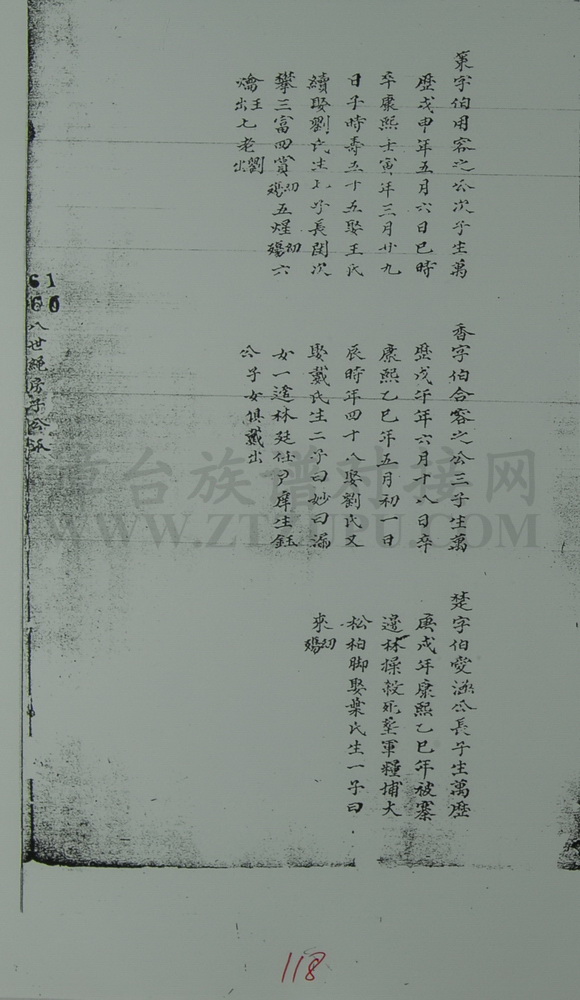 策字伯用容之公次子生萬
歷戊申年五月六日巳時
卒康熙壬寅年三月廿九
日子時壽五十五娶王氏
續娶劉氏生七子長閏次
攀三富四賞初殤五煋初殤六
王出七老劉出
香字伯合容之公三子生萬
歷戊午年六月十八日卒
康熙乙巳年五月初一日
辰時年四十八娶劉氏又
娶戴氏生二子曰妙曰滿
女一適林廷任尹庠生鈺
公子女俱戴出
楚字伯愛公長子生萬歷
庚戌年康熙乙巳年被寨
邊林操殺死塟軍糧埔大
松柏脚娶葉氏生一子曰
來初殤
61
60
八世繩房
漳台族谱对接网
WWW.ZTZUPU.COM
118